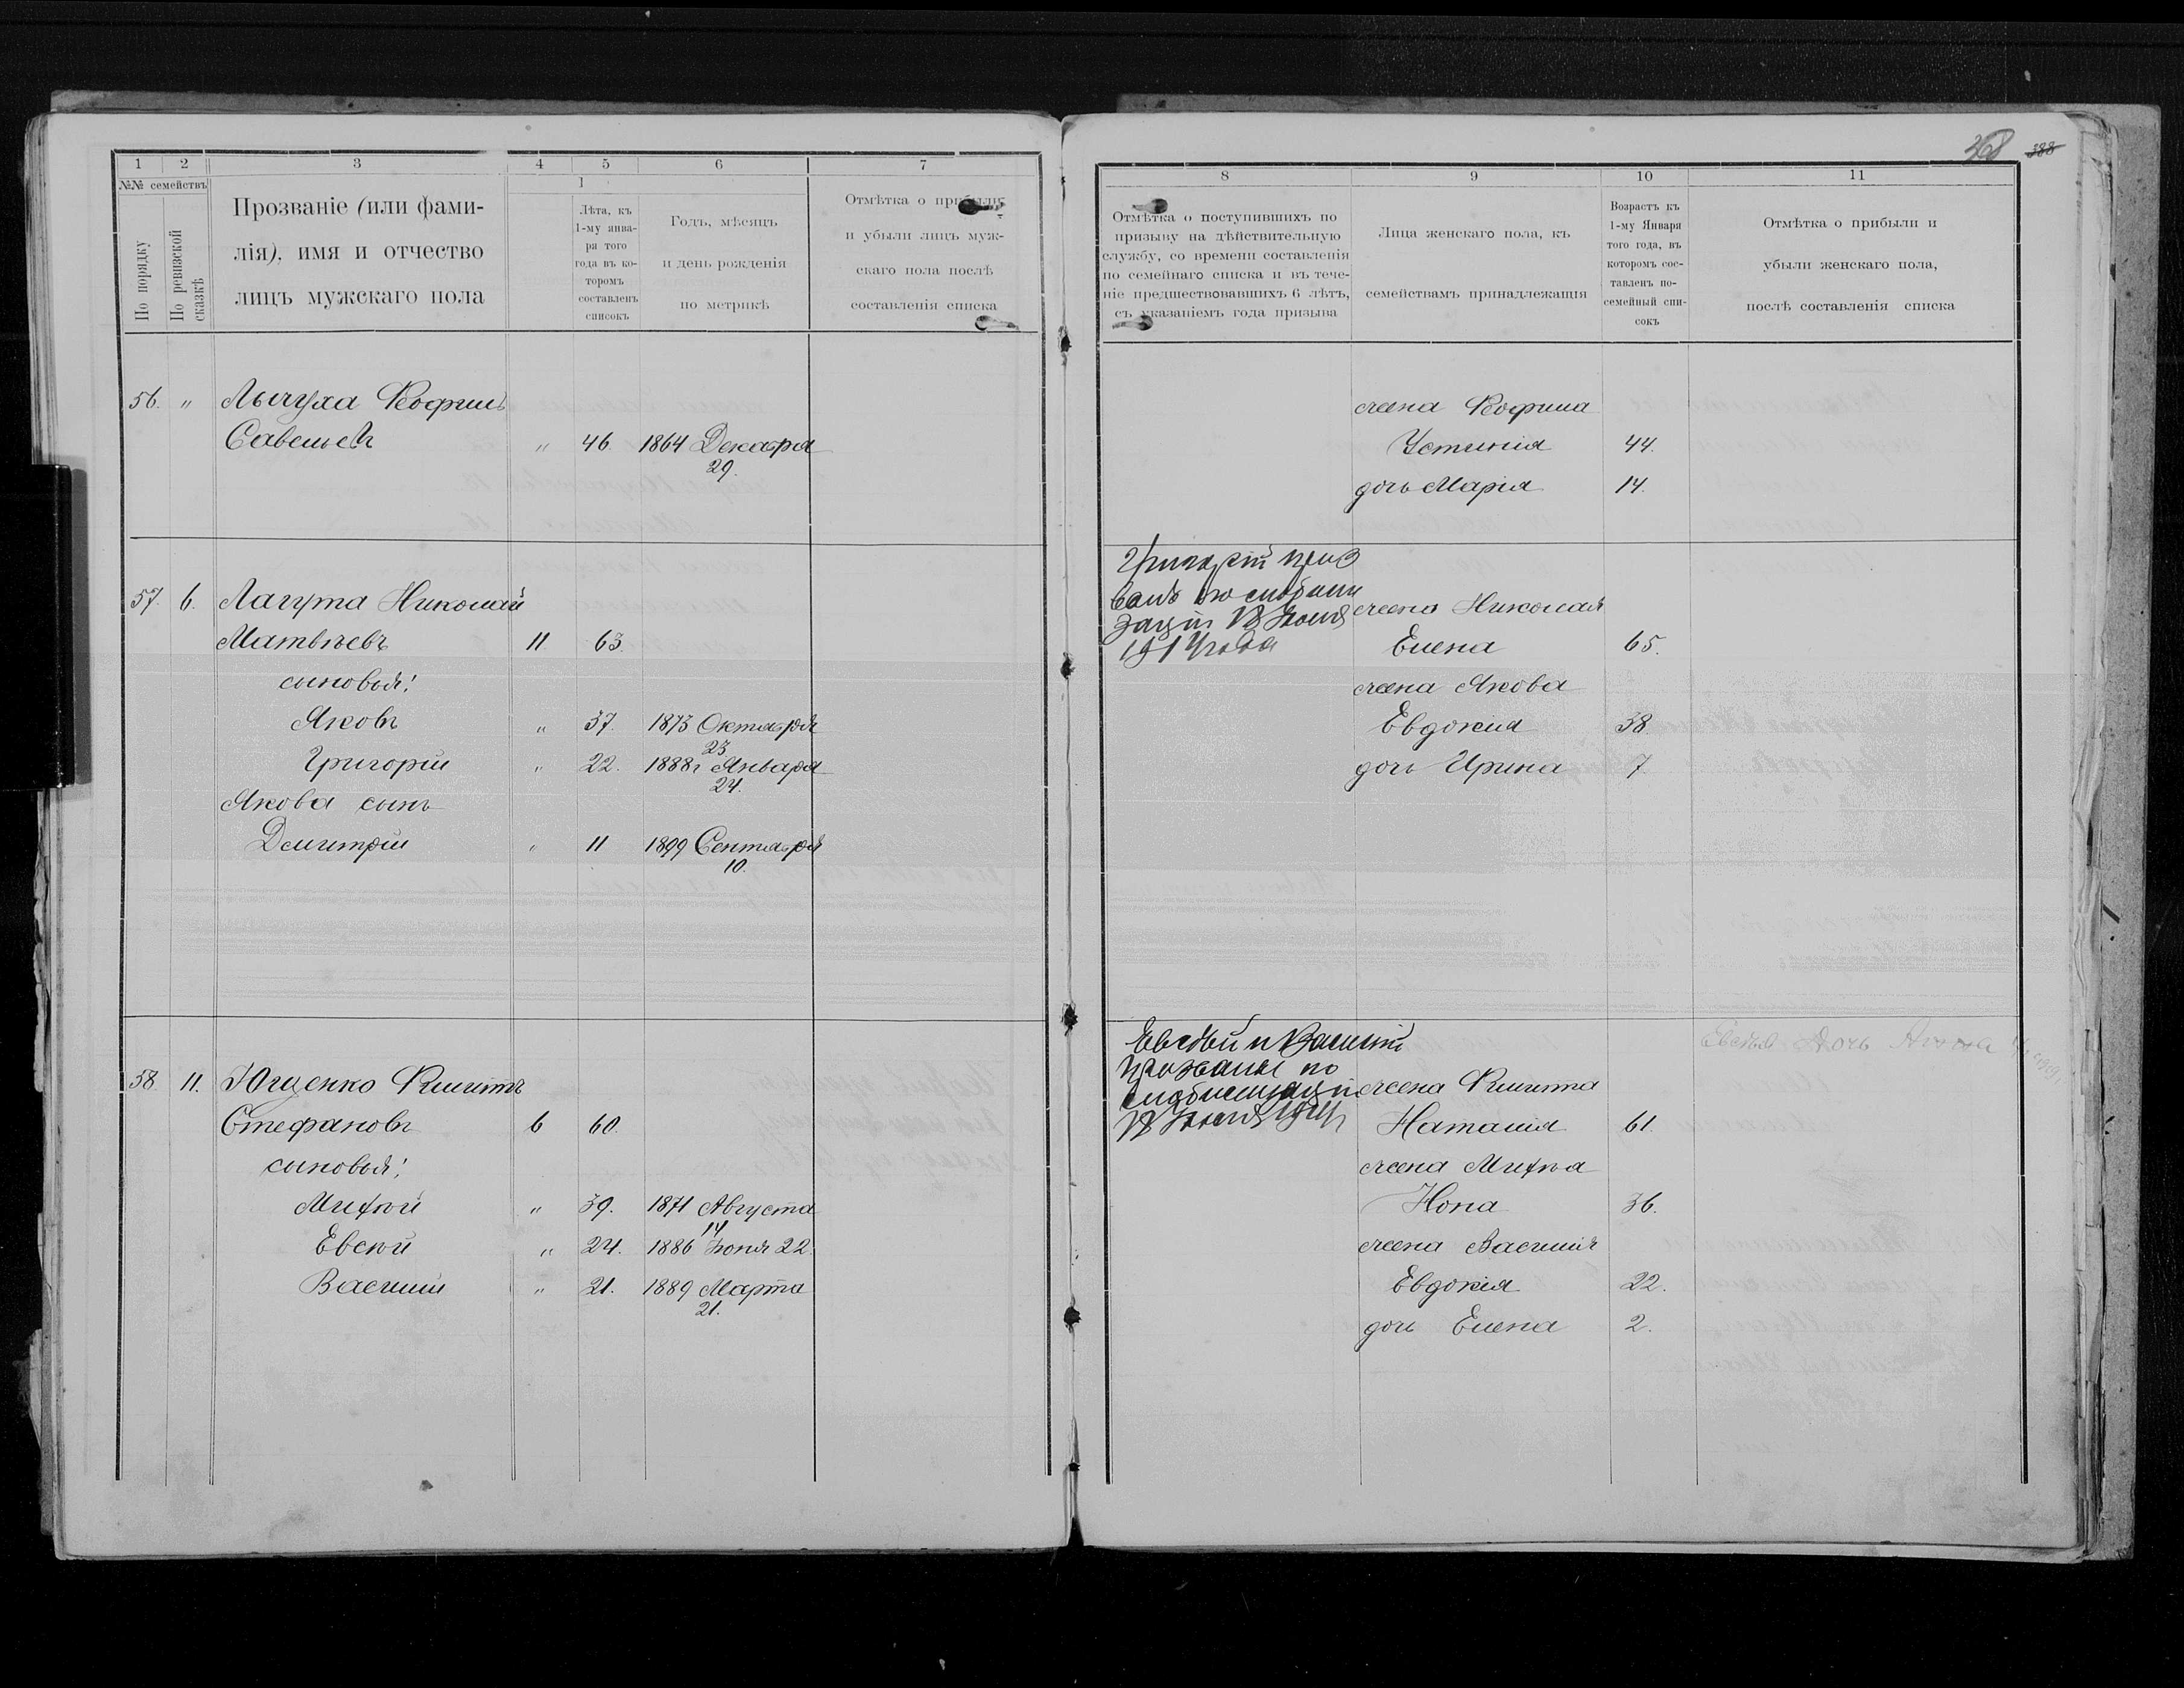 368 388
1 2 3 4 5 6 7
№№ семействъ
По порядку
По ревизской сказкѣ
Прозваніе (или фами-
лія), имя и отчество
лицъ мужскаго пола
Лѣта, къ
1-му янва-
ря того
года въ ко-
торомъ
составленъ
списокъ
Годъ, мѣсяцъ
и день рожденія
по метрикѣ
Отмѣтка о прибыли
и убыли лицъ муж-
скаго пола послѣ
составленія списка
56. " Лычуха
Савельевъ " 46. 1864 Декабря
29.
57. 6. Лагута Николай
Матвѣевъ 11 63.
сыновья:
Яковъ " 37. 1873 Октября
23
Григорій " 22. 1888 г Января
24.
Якова сынъ
Дмитрій " 11 1899 Сентября
10.
58. 11. Ющенко Климентъ
Стефановъ 6 60.
сыновья:
Михѣй " 39. 1871 Августа
14
Евсѣй " 24. 1886 Іюня 22.
Василий " 21. 1889 Марта
21.
8 9 10 11
Отмѣтка о поступившихъ по
призыву на дѣйствительную
службу, со времени составленія
по семейнаго списка и въ тече-
ніе предшествовавшихъ 6 лѣтъ,
съ указаніемъ года призыва
Лица женскаго пола, къ
семействамъ принадлежащія
Возрастъ къ
1-му Января
того года, въ
которомъ сос-
тавленъ по-
семейный спи-
сокъ
Отмѣтка о прибыли и
убыли женскаго пола,
послѣ составленія списка
жена
Устинія 44.
дочь Марія 14.
Григорій приз
ванъ по мобили
заціи 18 Іюля
1914 года
жена Николая
Елена 65.
жена Якова
Евдокія 38
дочь Ирина 7.
Евсѣй и Василій
призваны по
мобилизаціи
18 Іюля 1914 г
Евсѣя дочь Анна
жена Климента
Наталия 61.
жена Михѣя
Нона 36.
жена Василія
Евдокія 22.
дочь Елена 2.